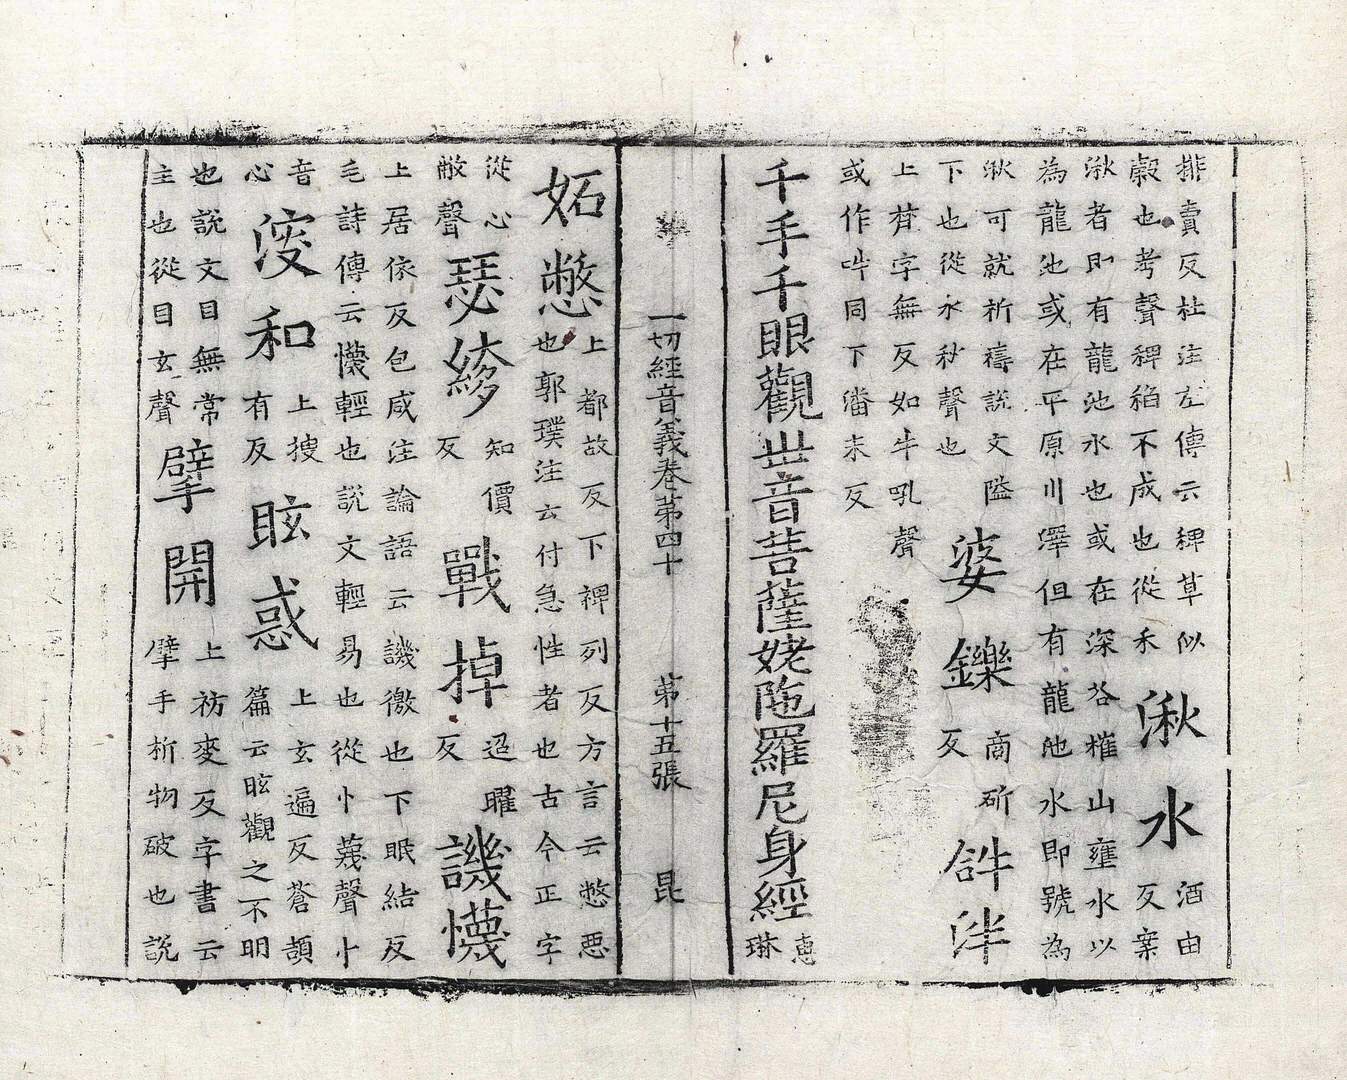 排賣反杜注左傳云稗草似
穀也考聲稗稻不成也從禾
湫水
酒由
反案
湫者即有龍池水也或在深谷摧山壅水以
為龍池或在平原川澤但有龍池水即號為
湫可就祈禱說文隘
下也從水秋聲也
婆鑠
商斫
反
𤙖泮
上𤙖字無反如牛吼聲
或作吽同下潘末反
千手千眼觀世音菩薩姥陁羅尼身經
惠
琳
一切經音義卷第四十 第十五張 昆
妬憋
上都故反下裨列反方言云憋惡
也郭璞注云付急性者也古今正字
從心
敝聲
瑟絺
知價
反
戰掉
迢曜
反
譏懱
上居依反包咸注論語云譏徼也下眠結反
毛詩傳云懱輕也說文輕易也從忄蔑聲忄
音
心
浚和
上搜
有反
眩惑
上玄遍反蒼頡
篇云眩觀之不明
也說文目無常
主也從目玄聲
擘開
上祊麥反字書云
擘手析物破也說